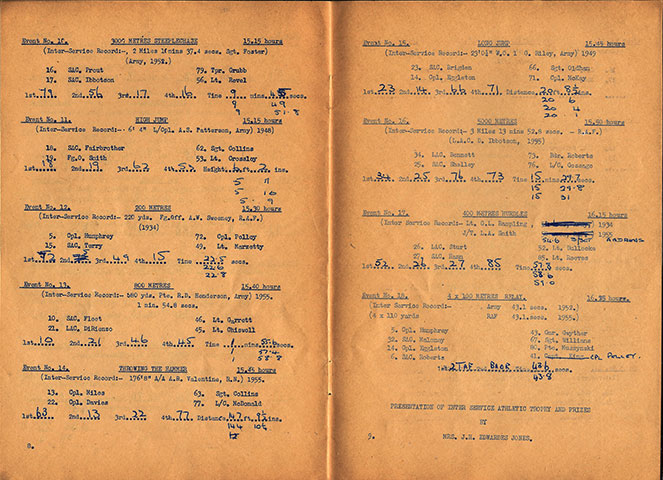 Event No. 10. 3000 METRES STEEPLECHASE 15.15 hours
(Inter-Service Record:-, 2 Miles 10 mins 37.4 secs. Sgt. Foster)
(Army, 1952.)
16. SAC. Prout 79. Tpr. Grubb
17. SAC. Ibbotson 56. Lt. Revel
1st. 79 2nd. 56 3rd. 17 4th. 16 Time 9 mins. 45 secs.
9 49
9 51.8
Event No. 11. HIGH JUMP 15.15 hours
(Inter-Service Record:- 6' 4" L/Cpl. A.S. Patterson, Army) 1948)
18. SAC. Fairbrother 62. Sgt. Collins
19. Fg.O. Smith 53. Lt. Crossley
1st. 18 2nd. 19 3rd. 62 4th. 53 Height. 6 ft. 2 ins.
5 11
5 10
5 9
Event No. 12. 200 METRES 15.30 hours
(Inter-Service Record:- 220 yds. Fg.Off. A.W. Sweeney, R.A.F.)
(1934)
5. Cpl. Humphrey 72. Cpl. Polley
15. SAC. Terry 49. Lt. Marzetty
2nd. 3rd. 49 4th. 15 Time 22.5 secs.
22.6
22.8
Event No. 13. 800 METRES 15.40 hours
(Inter-Service Record:- 880 yds. Pte. R.D. Henderson, Army) 1955.
1 min. 54.8 secs.
10. SAC. Fleet 46. Lt. Garrett
21. LAC. DiRienzo 45. Lt. Chiswell
1st. 10 2nd. 21 3rd. 46 4th. 45 Time 1 mins. secs.
1 57.4
1 58.8
Event No. 14. THROWING THE HAMMER 15.45 hours
(Inter-Service Record:- 176'8" A/A A.B. Valentine, R.N.) 1955.
13. Cpl. Miles 63. Sgt. Collins
22. Cpl. Davies 77. L/C. McDonald
1st. 63 2nd. 13 3rd. 22 4th. 77 Distance. 147 ft. ins.
144 10½
8.
Event No. 15. LONG JUMP 15.45 hours
(Inter-Service Record:- 23'0½" W.O. 1 C. Giley, Army) 1949
23. SAC. Brigden 66. Sgt. Oldham
14. Cpl. Eggleton 71. Cpl. McKay
1st. 23 2nd. 14 3rd. 66 4th. 71 Distance 20 ft. 8½ ins.
20 6
20 4
20 1
Event No. 16. 5000 METRES 15.50 hours
(Inter-Service Record:- 3 Miles 13 mins 52.8 secs. - R.A.F.)
(L.A.C. D. Ibbotson, 1955)
34. LAC. Bennett 73. Bdr. Roberts
25. SAC. Shelley 76. L/C. Cosango
1st. 34 2nd. 25 3rd. 76 4th. 73 Time 15 mins. 29.7 secs.
15 29.8
15 31
Event No. 17. 400 METRES HURDLES 16.15 hours
(Inter Service Record:- Lt. C.L. Happling 1934
J/T. L.L. Smith 1955
54.6 ANDREWS
26. LAC. Sturt 52. Lt. Bullocke
27. SAC. Hann 85. Lt. Reeves
1st. 52 2nd. 26 3rd. 27 4th. 85 Time 57.8 secs.
58.6
59.0
Event No. 18. 4 x 100 METRES RELAY. 16.25 hours.
(Inter Service Record:- Army 43.1 secs. 1952.)
(4 x 110 yards RAF 43.1secs. 1955.)
5. Cpl. Humphrey 43. Gnr. Gwyther
32. SAC. Maloney 67. Sgt. Williams
14. Cpl. Eggleton 80. Pte. Muszynski
6. SAC. Roberts 41. CPL POLLEY.
1st. 2TAF 2nd. BAOR 43.6 secs.
43.8
PRESENTATION OF INTER SERVICE ATHLETIC TROPHY AND PRIZES
BY
9. MRS. J.H. EDWARDES JONES.